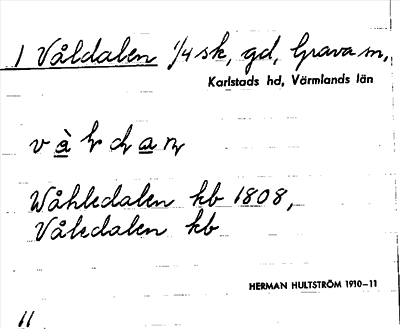 1 Våldalen 1/4 sk, gd, Grava sn,
Karlstads hd, Värmlands län
Wåhledalen kb 1808,
Våledalen kb
HERMAN HULTSTRÖM 1910-11
11